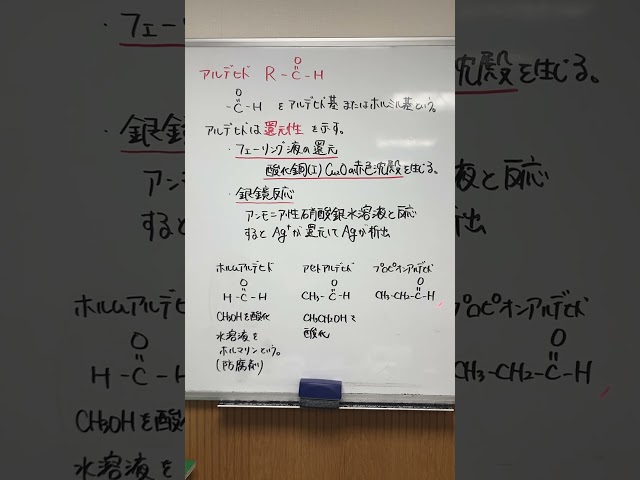 アルデヒド R-C-H
O
O
-C-H をアルデヒド基またはホルミル基という。
アルデヒドは還元性を示す。
・フェーリング液の還元
酸化銅(I) Cu2Oの赤色沈殿を生じる。
・銀鏡反応
アンモニア性硝酸銀水溶液と反応
すると Ag+が還元してAgが析出
ホルムアルデヒド アセトアルデヒド プロピオンアルデヒド
O O O
H-C-H CH3-C-H CH3-CH2-C-H
CH3OHを酸化 CH3CH2OHを
酸化
水溶液を
ホルマリンという。
(防腐剤)